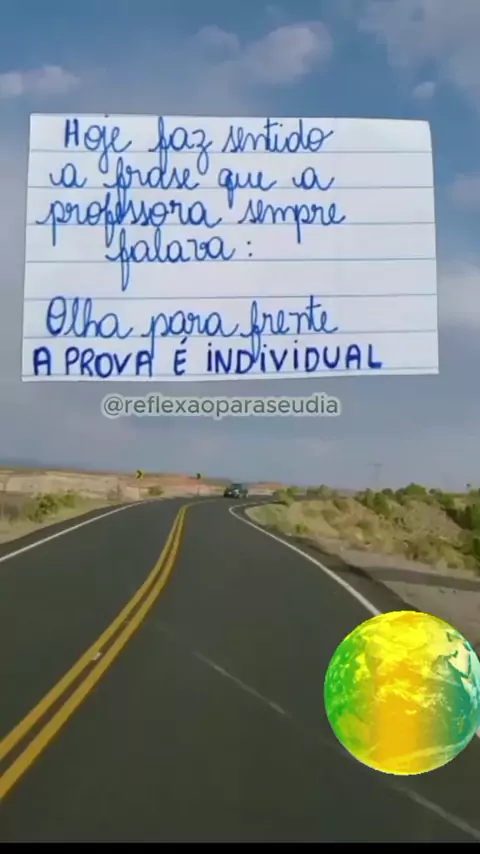 Hoje faz sentido
a frase que a
professora sempre
falava:
Olha para frente
A PROVA É INDIVIDUAL
@reflexaoparaseudia